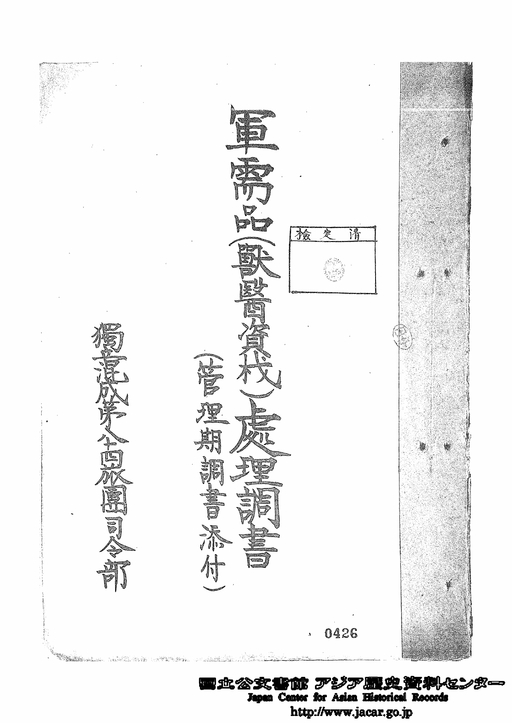 檢定濟
軍需品(獸醫資材)處理調書
(管理期調書添付)
獨立混成第八十四旅團司令部
0426
国立公文書館 アジア歴史資料センター
Japan Center for Asian Historical Records
http://www.jacar.go.jp